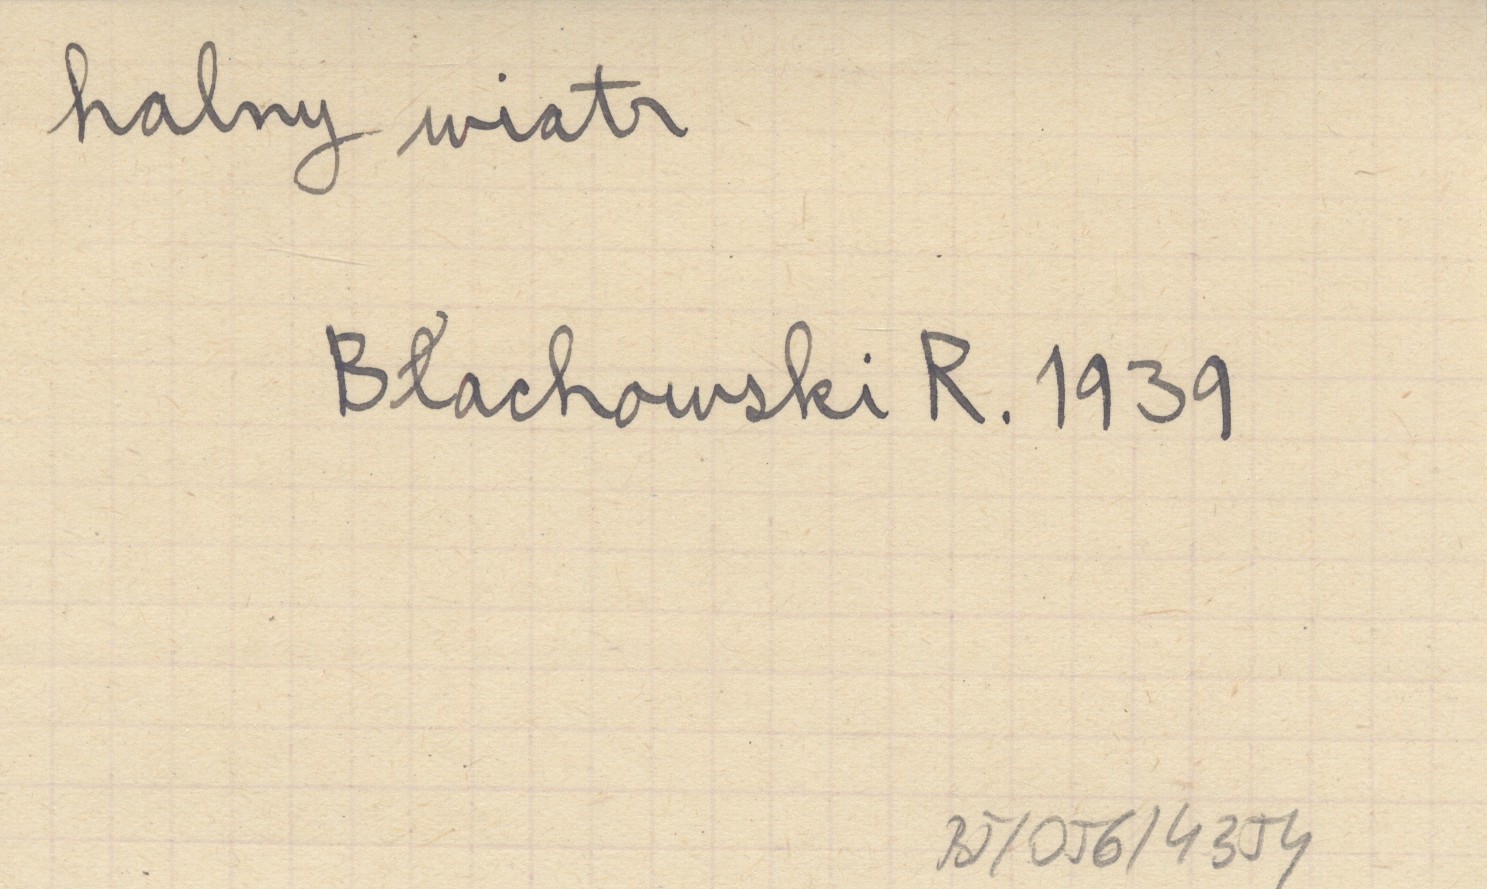 halny wiatr
Błachowski R. 1939
BJ/056/4354